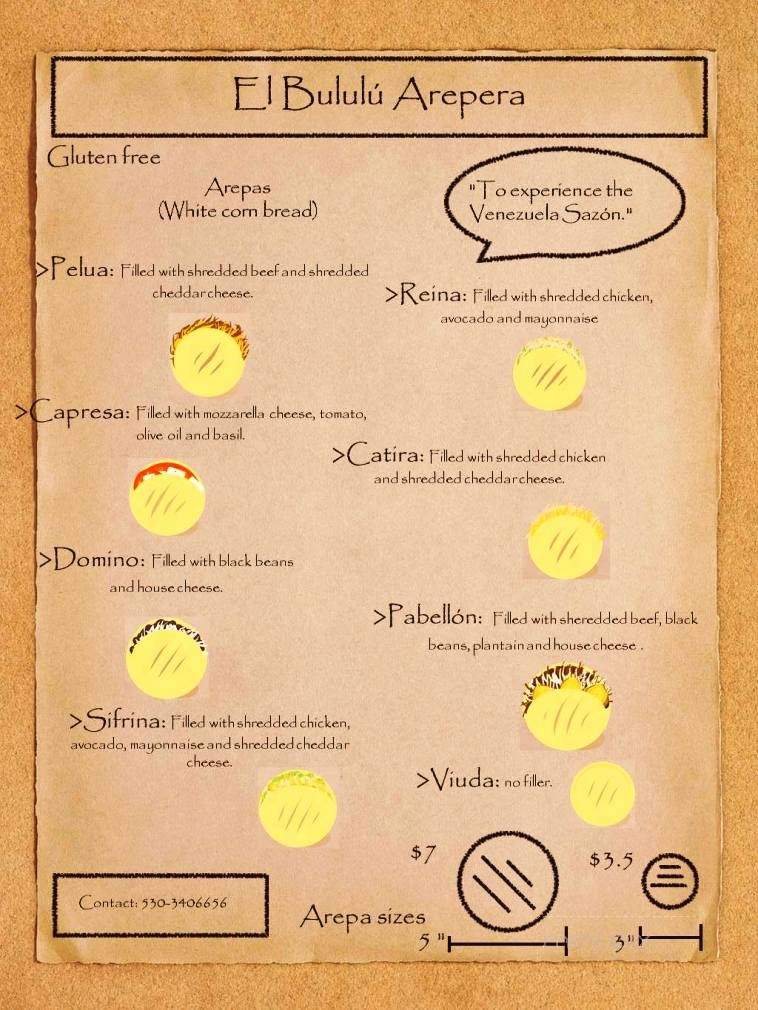 El Bululú Arepera
Gluten free
Arepas
(White corn bread)
"To experience the
Venezuela Sazón."
>Pelua: Filled with shredded beef and shredded
cheddar cheese.
>Reina: Filled with shredded chicken,
avocado and mayonnaise
>Capresa: Filled with mozzarella cheese, tomato,
olive oil and basil.
>Catira: Filled with shredded chicken
and shredded cheddar cheese.
>Domino: Filled with black beans
and house cheese.
>Pabellón: Filled with sheredded beef, black
beans, plantain and house cheese .
>Sifrina: Filled with shredded chicken,
avocado, mayonnaise and shredded cheddar
cheese.
>Viuda: no filler.
$7
$3.5
Contact: 530-3406656
Arepa sizes
5 "
3"